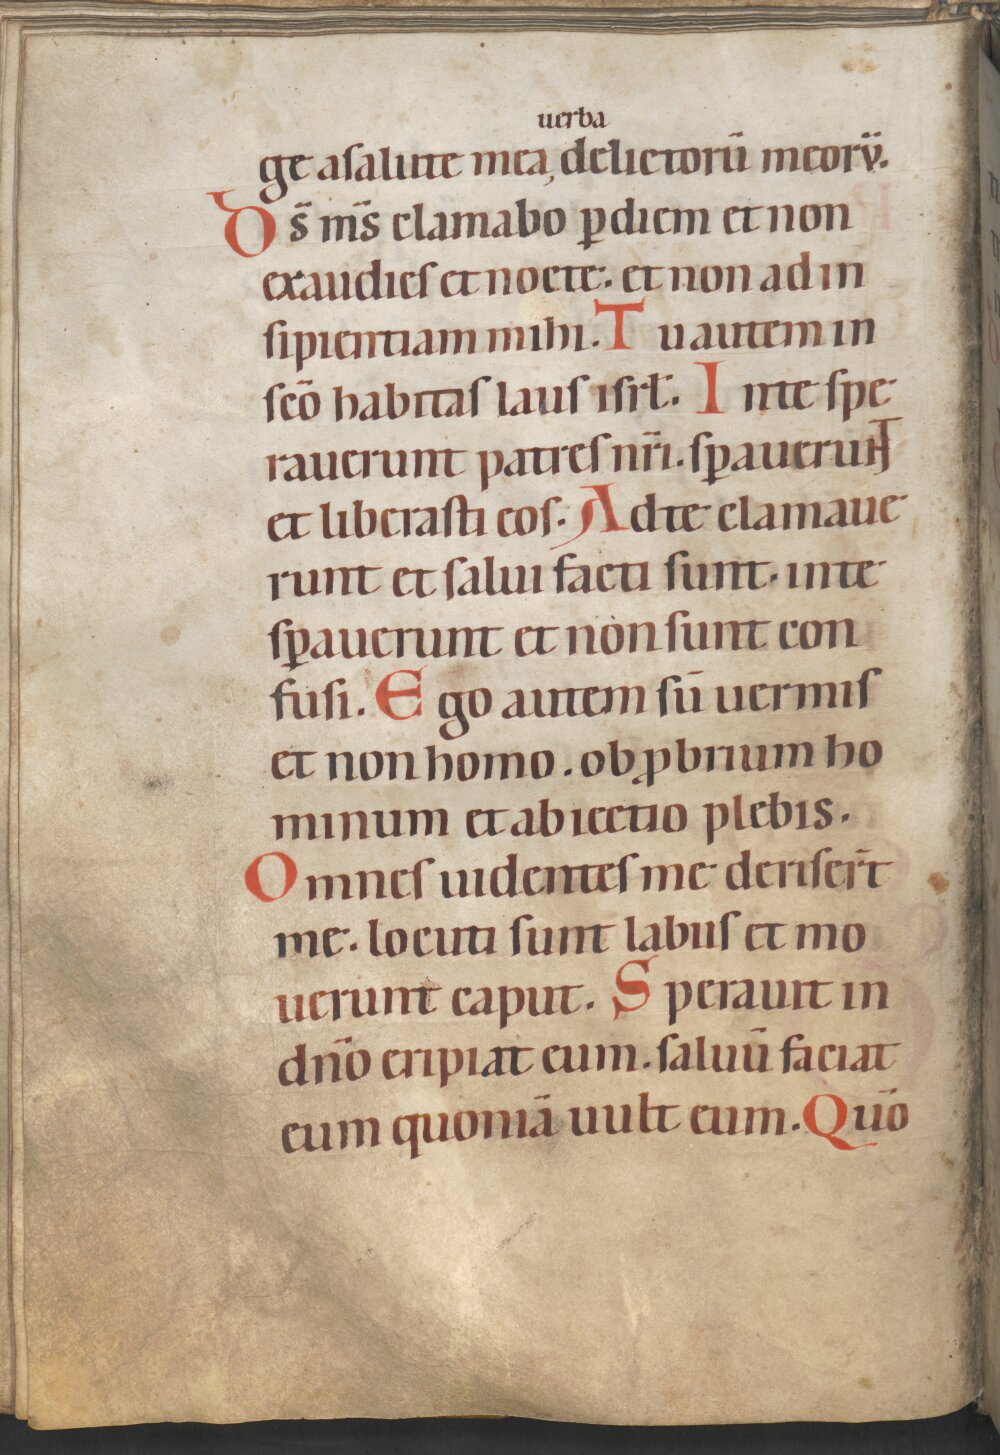 uerba
ge a salute mea, delictorū meorū.
Ds̄ ms̄ clamabo ꝑ diem et non
exaudies et nocte. et non ad in
sipientiam mihi. Tu autem in
sc̄o habitas laus isrł. In te spe
rauerunt patres nr̄i. sꝑauerunt
et liberasti eos. Ad te clamaue
runt et salui facti sunt. in te
sꝑauerunt et non sunt con
fusi. Ego autem sū uermis
et non homo. obꝓbrium ho
minum et abiectio plebis.
Omnes uidentes me deriser̄t
me. locuti sunt labiis et mo
uerunt caput. Sperauit in
dn̄o eripiat eum. saluū faciat
eum quoniā uult eum. Quō